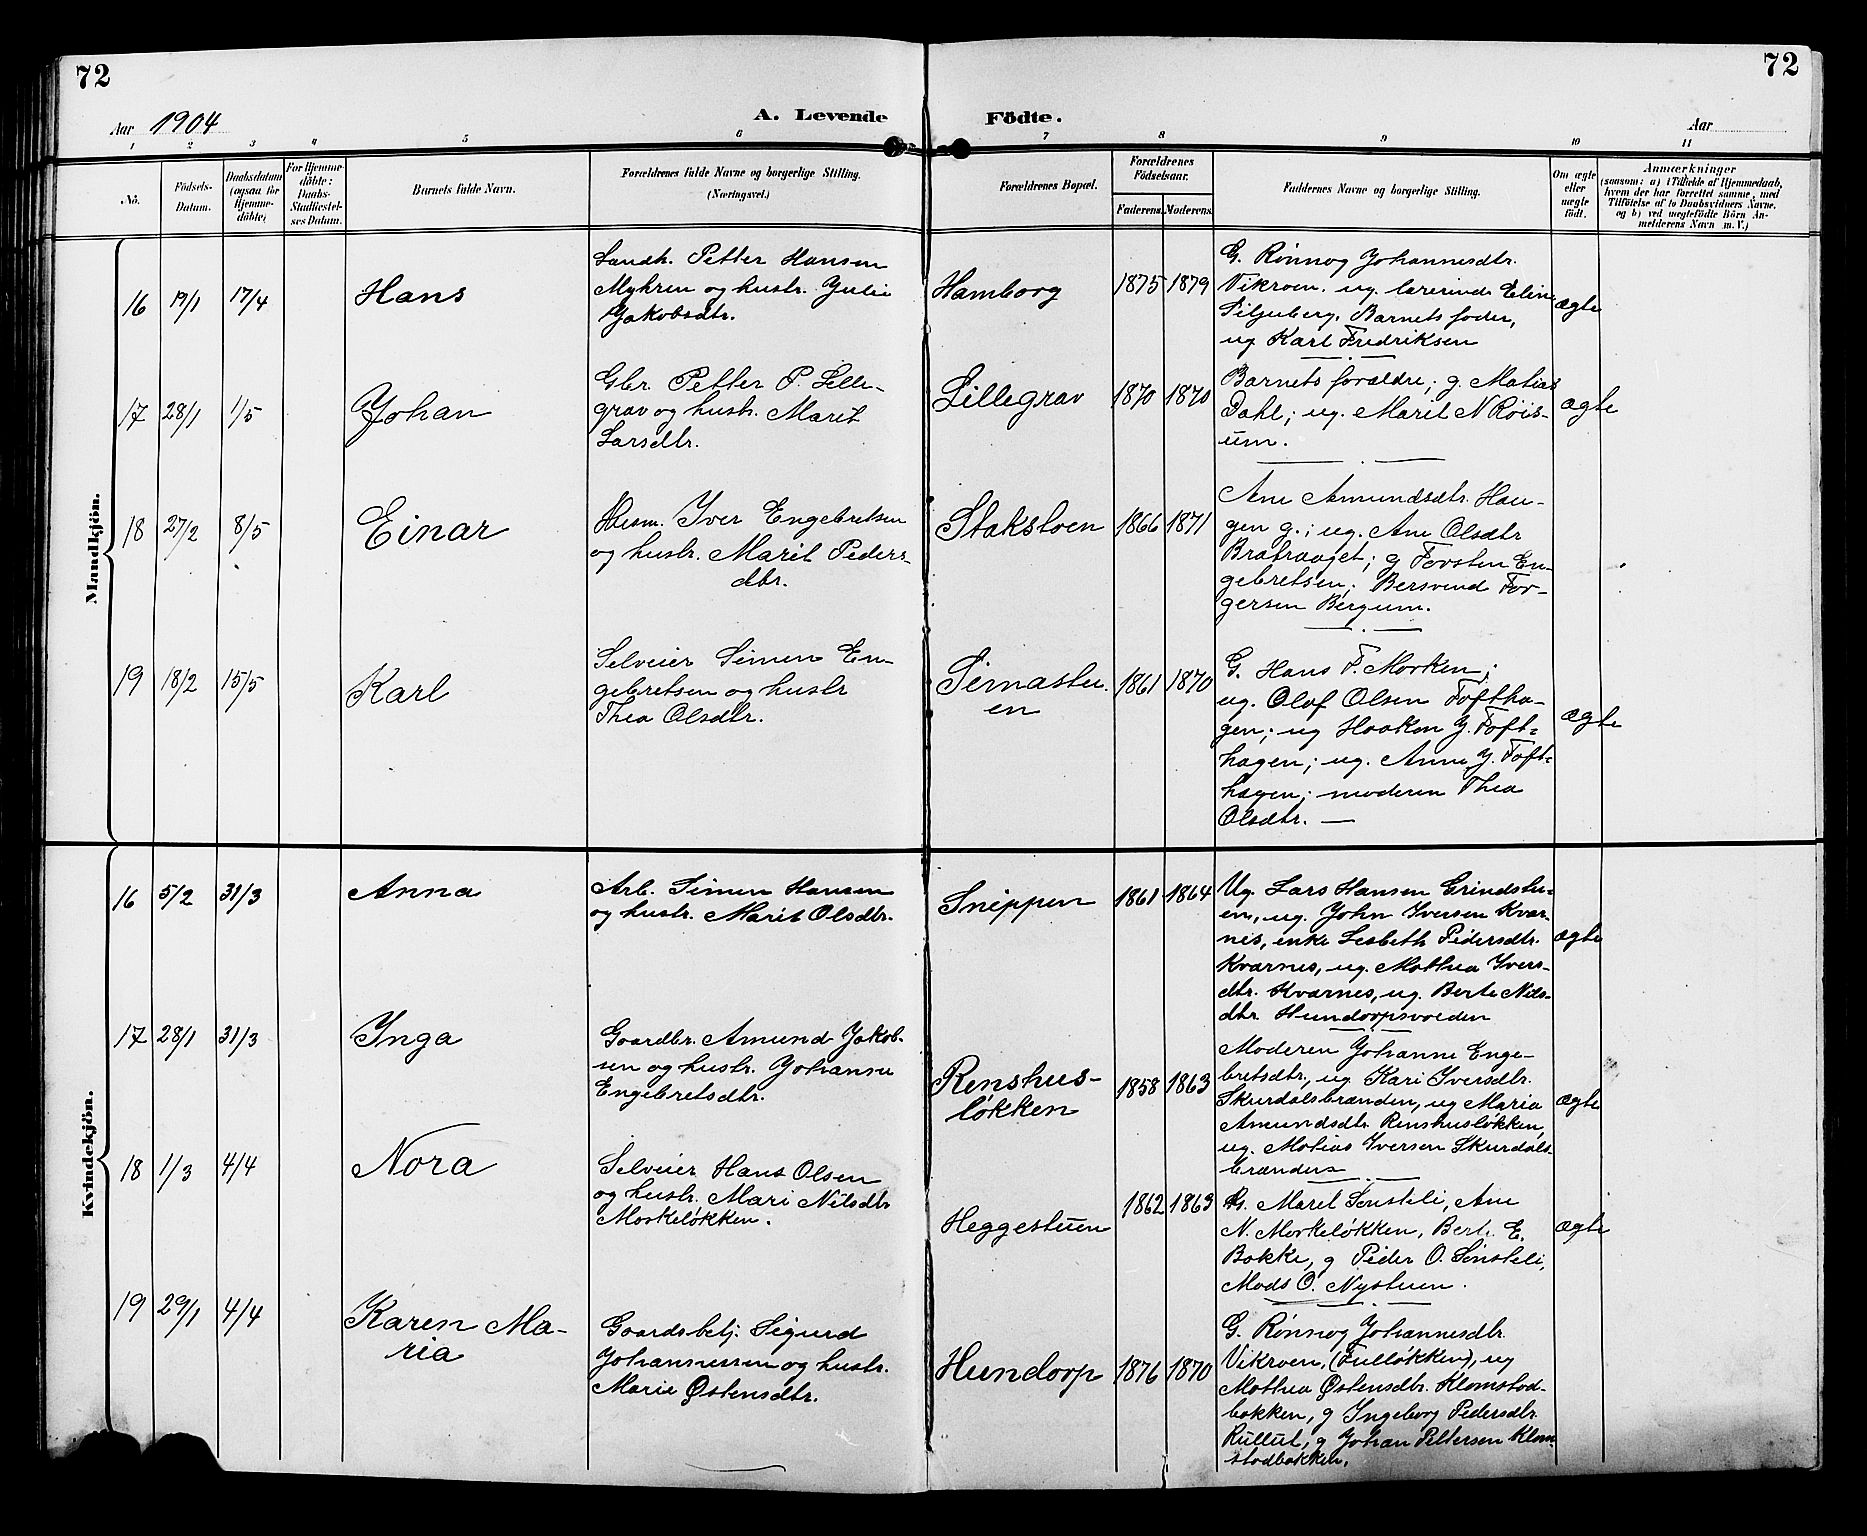 72
72
Aar 1904
A. Levende Födte.
Aar
1 2 3 4 5 6 7 8 9 10 11
No.
Födsels-
Datum.
Daabsdatum
(ogsaa for
Hjemme-
döbte)
For Hjemme-
döbte:
Daabs-
Stadfæstel-
ses Datum.
Barnets fulde Navn.
Forældrenes fulde Navne og borgerlige Stilling.
(Næringsvei.)
Forældrenes Bopæl.
Forældrenes
Födselsaar.
Faderens. Moderens.
Faddernes Navne og borgerlige Stilling.
Om ægte
eller
uægte
födt.
Anmærkninger
(saasom: a) i Tilfælde af Hjemmedaab,
hvem der har forrettet samme, med
Tilföielse af to Daabsvidners Navne,
og b) ved uægtefödte Börn An-
melderens Navn m. V.)
Mandkjön.
16 19/1 17/4 Hans
Landh. Petter Hansen
Myhren og hustr. Julie
Jakobsdtr.
Hamborg 1875 1879
G. Rønnog Johannesdtr.
Vikroen. ug. lærerinde Elin
Siljuberg. Barnets fader,
ug Karl Fredriksen
ægte
17 28/1 1/5 Johan
Gbr. Petter P. Lille-
grav og hustr. Marit
Larsdtr.
Lillegrav 1870 1870
Barnets forældre; g. Matias
Dahl; ug. Marit N Røis-
um.
ægte
18 27/2 8/5 Einar
Husm. Iver Engebretsen
og hustr. Marit Peders-
dtr.
Stakstoen 1866 1871
Ane Amundsdtr. Hau-
gen g.; ug. Ane Olsdtr
Bratvaaget; g Torsten En-
gebretsen; Bersvend Tor-
gersen Bergum.
19 18/2 15/5 Karl
Selveier Simen En-
gebretsen og hustr
Thea Olsdtr.
Simastu-
en
1861 1870
G. Hans T. Morken;
ug. Olaf Olsen Toftha-
gen; ug Haaken J. Toft-
hagen; ug. Anne J. Toft-
hagen; moderen Thea
Olsdtr. —
ægte
Kvindekjön.
16 5/2 31/3 Anna
Arb. Simen Hansen
og hustr. Marit Olsdtr.
Snippen 1861 1864
Ug. Lars Hansen Grindstu-
en, ug. John Iversen Kvar-
nes, enke Lisbeth Pedersdtr.
Kvarnes, ug. Mathea Ivers-
dtr. Kvarnes, ug. Berte Nils-
dtr Hundorpsvolden
ægte
17 28/1 31/3 Inga
Gaardbr. Amund Jakob-
sen og hustr. Johanne
Engebretsdtr.
Renshus-
løkken
1858 1863
Moderen Johanne Enge-
bretsdtr., ug. Kari Iversdtr.
Skurdalsbrænden, ug Maria
Amundsdtr Renshusløkken,
ug. Matias Iversen Skurdals-
brænden
ægte
18 1/3 4/4 Nora
Selveier Hans Olsen
og hustr. Mari Nilsdtr
Morkeløkken.
Heggestuen 1862 1863
G. Marit Sønsteli, Ane
N. Morkeløkken, Berte E.
Bakke, g Peder O. Sønsteli,
Mads O. Nystuen.
ægte
19 29/1 4/4 Karen Ma-
ria
Gaardsbetj. Sigurd
Johannessen og hustr.
Marie Østensdtr.
Hundorp 1876 1870
G. Rønnog Johannesdtr.
Vikroen, (Tulløkken), ug
Mathea Østensdtr. Klomstad-
bakken, g Ingeborg Pedersdtr
Rullut, g Johan Pettersen Klom-
stadbakken.